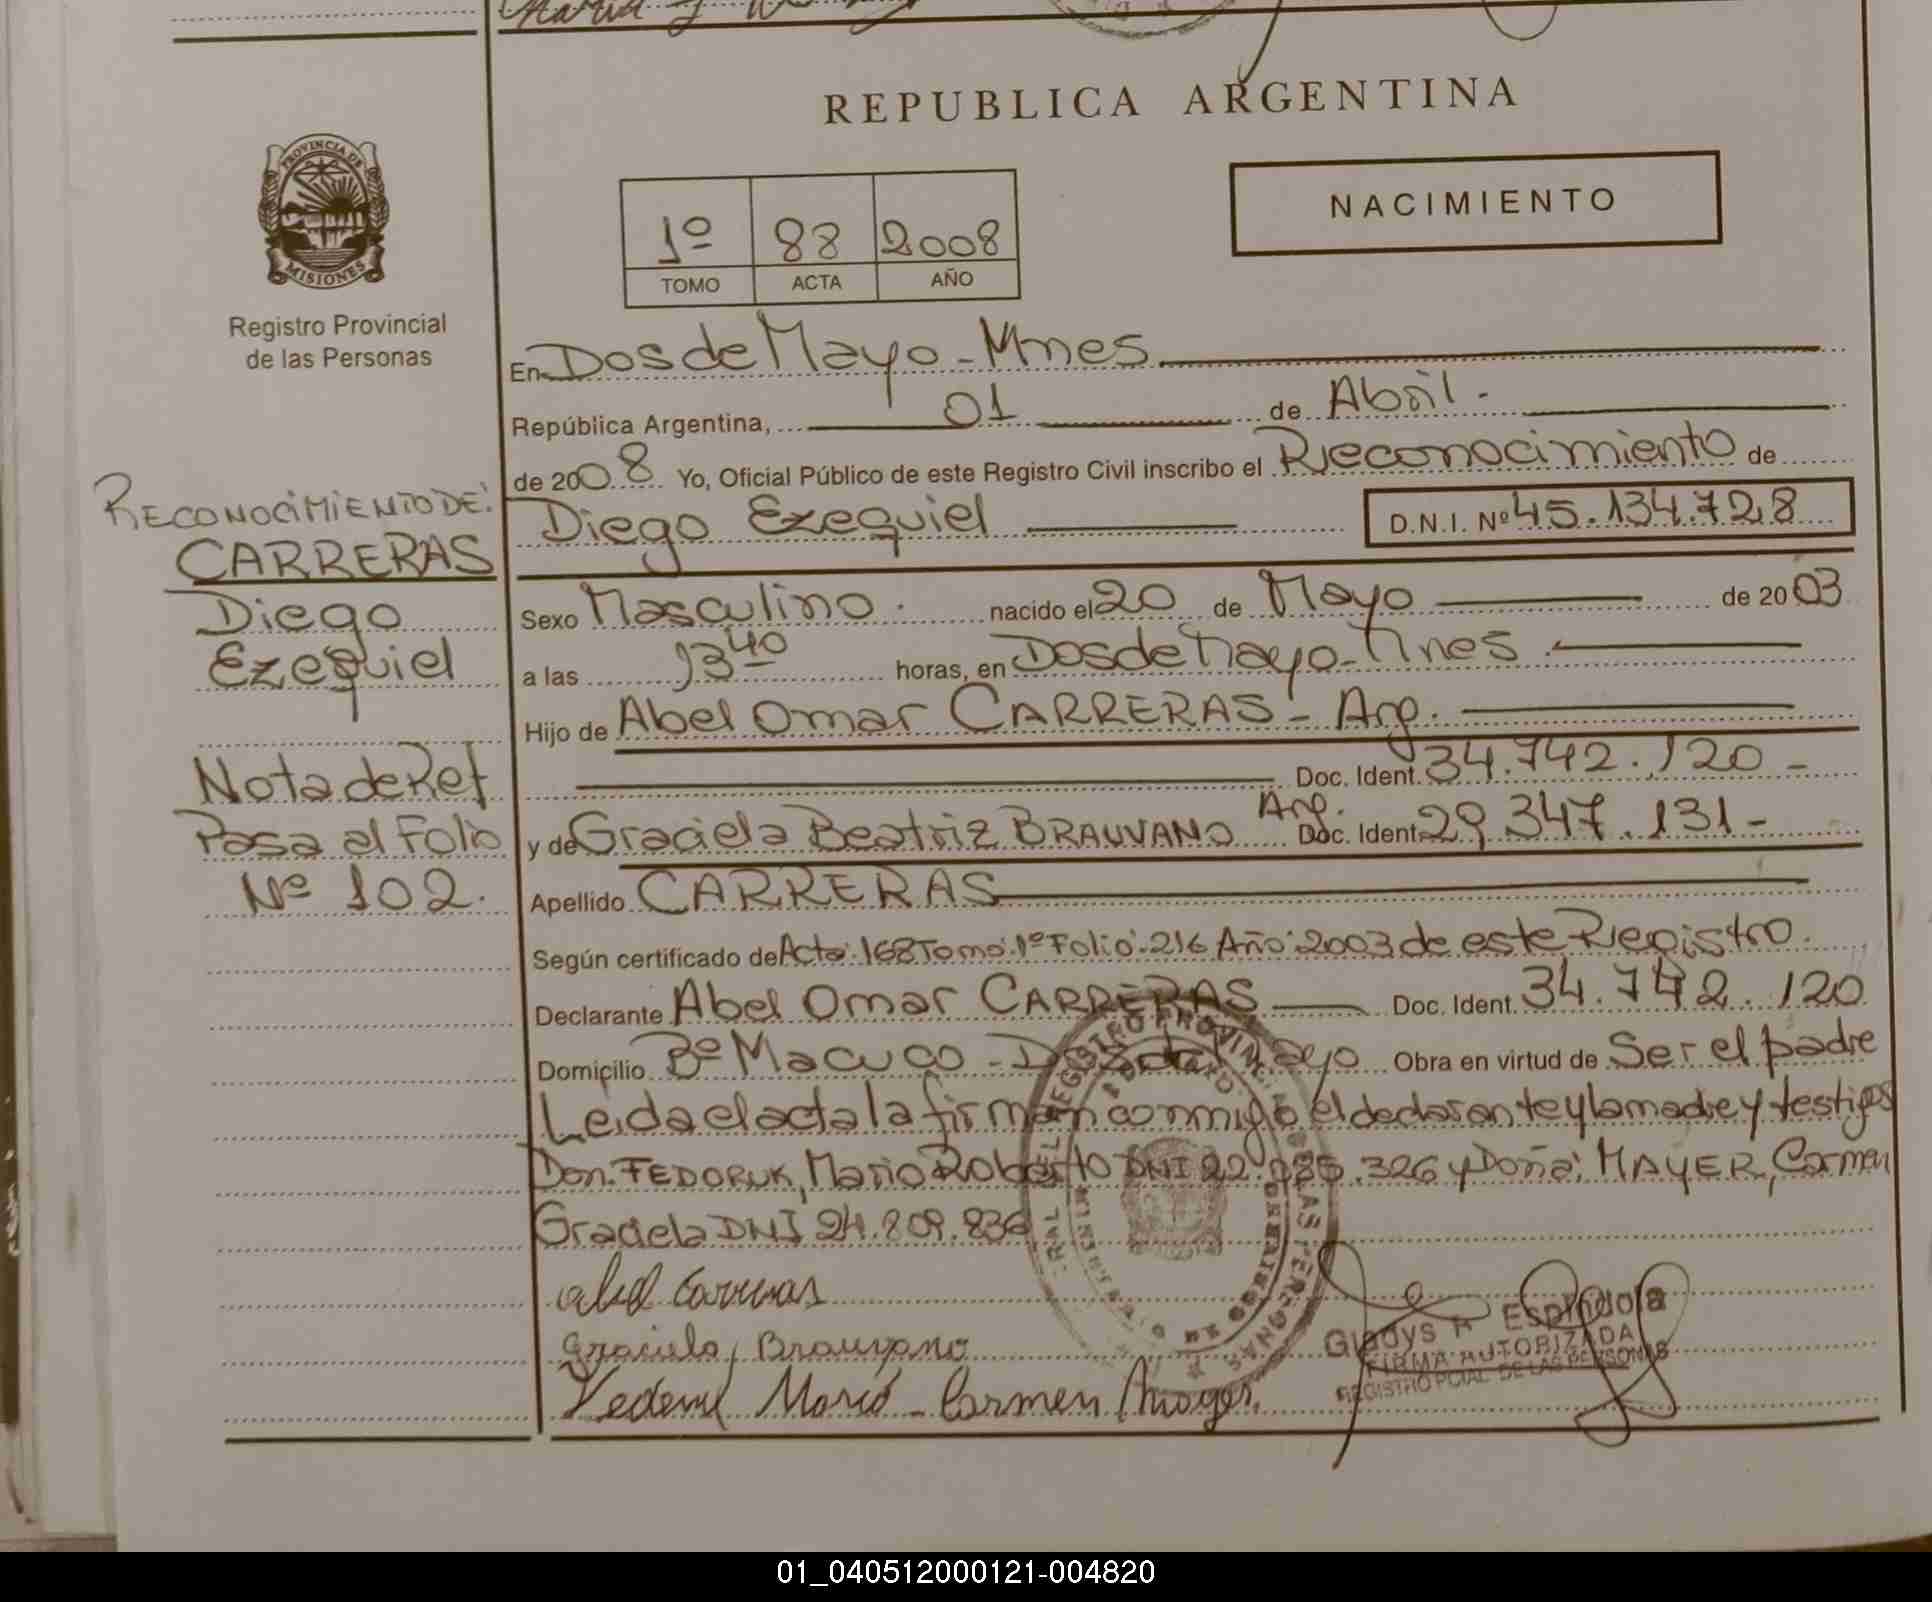 REPUBLICA ARGENTINA
PROVINCIA DE
MISIONES
Registro Provincial
de las Personas
NACIMIENTO
1º 88 2008
TOMO ACTA AÑO
En Dos de Mayo - Mnes
República Argentina, 01 de Abril.
de 2008 Yo, Oficial Público de este Registro Civil inscribo el Reconocimiento de
Diego Ezequiel D.N.I. Nº 45.134.728
RECONOCIMIENTO DE:
CARRERAS
Diego
Ezequiel
Nota de Ref
Pasa al Folio
Nº 102.
Sexo Masculino. nacido el 20 de Mayo de 2003
a las 13 40 horas, en Dos de Mayo - Mnes
Hijo de Abel Omar CARRERAS - Arg.
Doc. Ident. 34.742.120 -
y de Graciela Beatriz BRAUVANO Arg. Doc. Ident. 29.347.131 -
Apellido CARRERAS
Según certificado de Acta: 168 Tomo: 1º Folio: 216 Año: 2003 de este Registro.
Declarante Abel Omar CARRERAS Doc. Ident. 34.742.120
Domicilio Bº Macuco - Dos de Mayo Obra en virtud de Ser el padre
Leida el acta la firman conmigo el declarante y la madre y testigos
Don: FEDORUK, Mario Roberto DNI 22. .326 y Doña: MAYER, Carmen
Graciela DNI 24.809.836
Abel Carreras
Graciela Brauvano
Mario - Carmen
Gladys Espindola
FIRMA AUTORIZADA
REGISTRO PCIAL DE LAS PERSONAS
01_040512000121-004820